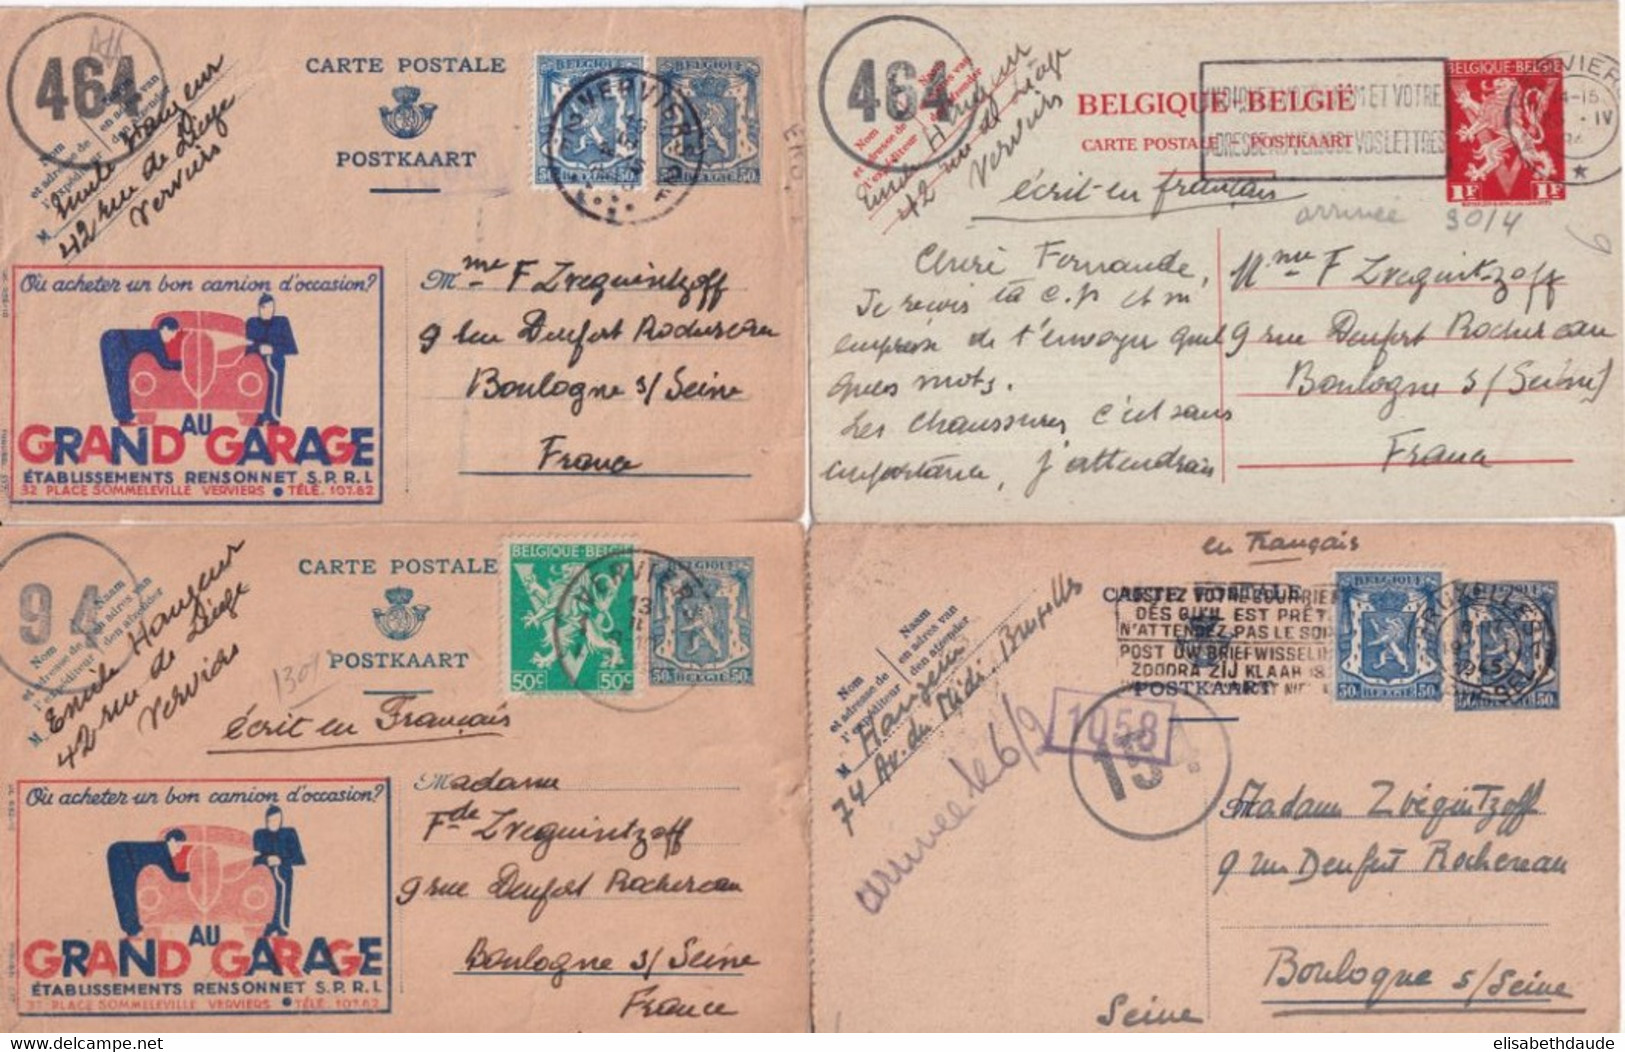 464
CARTE POSTALE
POSTKAART
Nom
et adresse de
l'expéditeur
Naam
en adres van
den afzender
Emile Hangeur
42 rue de Liège
Verviers
BELGIQUE-BELGIË
50 BELGIE 50
Où acheter un bon camion d'occasion?
AU
GRAND GARAGE
ÉTABLISSEMENTS RENSONNET S.P.R.L
32 PLACE SOMMELEVILLE VERVIERS • TÉLÉ. 107.62
Mme F Zveguintzoff
9 rue Denfert Rochereau
Boulogne s/ Seine
France
464
BELGIQUE BELGIË
CARTE POSTALE POSTKAART
Nom
et adresse de
l'expéditeur
Emile Hangeur
42 rue de Liège
Verviers
BELGIQUE-BELGIE
1F 1F
écrit en français
arrivée 30/4
Chère Fernande,
Je reçois ta c.p et m'
empresse de t'envoyer quel
ques mots.
Les chaussures c'est sans
importance, j'attendrais
Mme F Zveguintzoff
9 rue Denfert Rochereau
Boulogne s/ (Seine)
France
94
CARTE POSTALE
POSTKAART
Nom
et adresse de
l'expéditeur
Naam
en adres van
den afzender
Emile Hangeur
42 rue de Liège
Verviers
BELGIQUE-BELGIE
50c 50c
BELGIQUE
50 BELGIE 50
VERVIERS
13
écrit en Français
Où acheter un bon camion d'occasion?
AU
GRAND GARAGE
ÉTABLISSEMENTS RENSONNET S.P.R.L
32 PLACE SOMMELEVILLE VERVIERS • TÉLÉ. 107.62
Madame
F Zveguintzoff
9 rue Denfert Rochereau
Boulogne s/ Seine
France
en Français
POSTEZ VOTRE COURRIER
DÈS QU'IL EST PRÊT
N'ATTENDEZ PAS LE SOIR
POST UW BRIEFWISSELING
ZOODRA ZIJ KLAAR IS
POSTKAART
Nom
et adresse de
l'expéditeur
Naam
en adres van
den afzender
Hangeur
74 Av. du Midi. Bruxelles
BELGIQUE
50 BELGIE 50
1945
arrivée le 6/2
1058
Madame Zvéguintzoff
9 rue Denfert Rochereau
Boulogne s/Seine
Seine
elisabethdaude